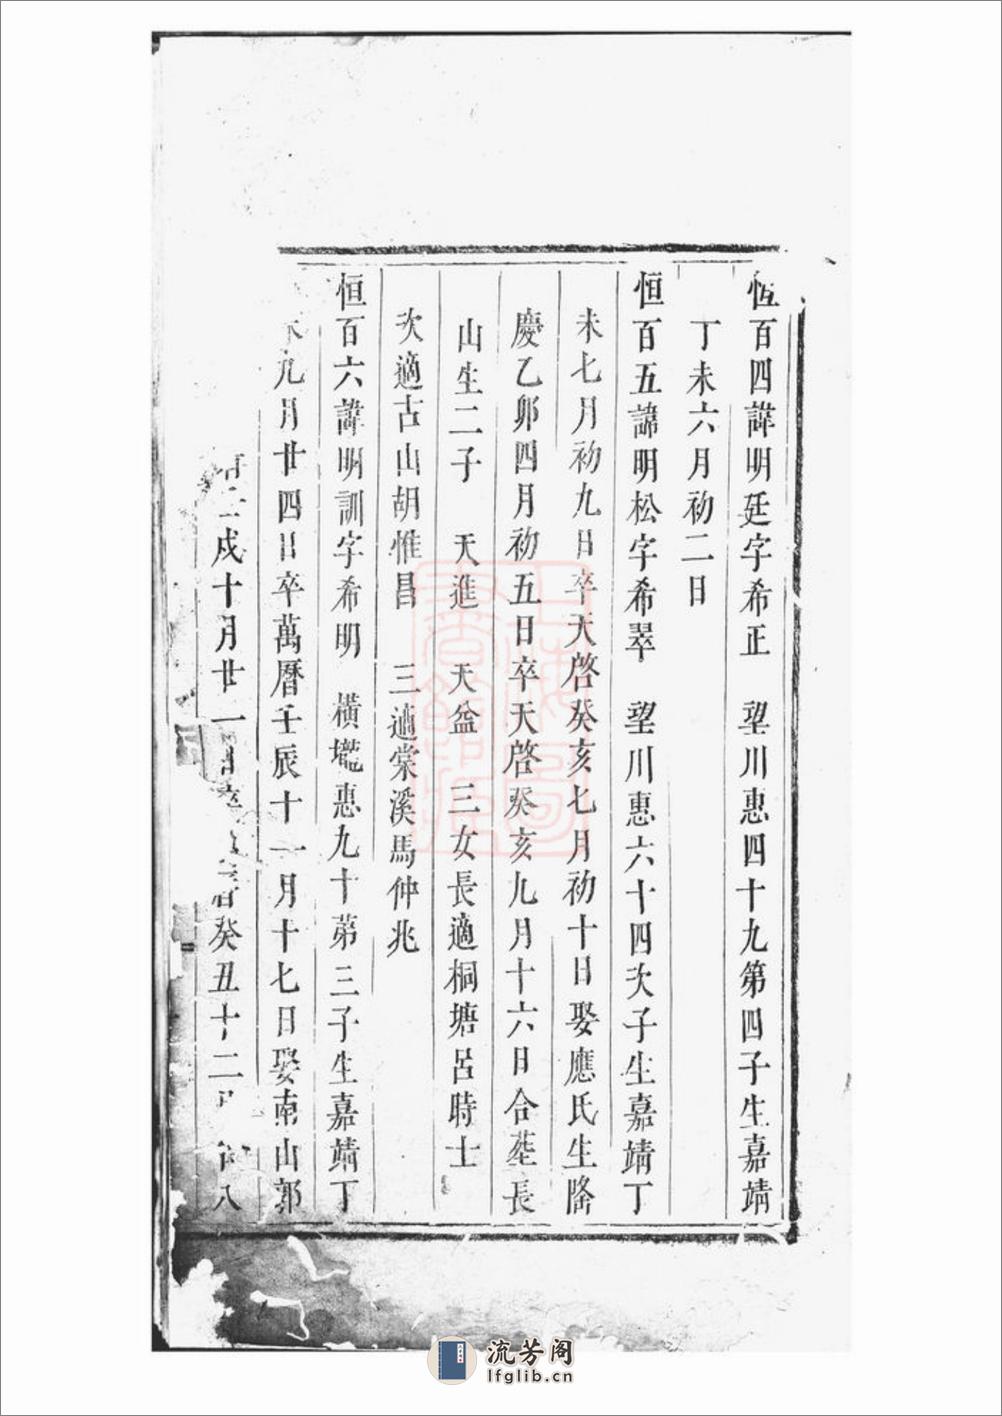 恒百四諱明廷字希正　望川惠四十九第四子生嘉靖
丁未六月初二日
恒百五諱明松字希翠　望川惠六十四次子生嘉靖丁
未七月初九日卒天啓癸亥七月初十日娶應氏生隆
慶乙卯四月初五日卒天啓癸亥九月十六日合塟長
山生二子　天進　天益　三女長適桐塘呂時士
次適古山胡惟昌　三適棠溪馬仲兆
恒百六諱明訓字希明　橫壠惠九十苐三子生嘉靖丁
未九月廿四日卒萬曆壬辰十一月十七日娶南山郭
戍十月廿一日卒 癸丑十二 八
上海圖書館藏
流芳阁
lfglib.cn